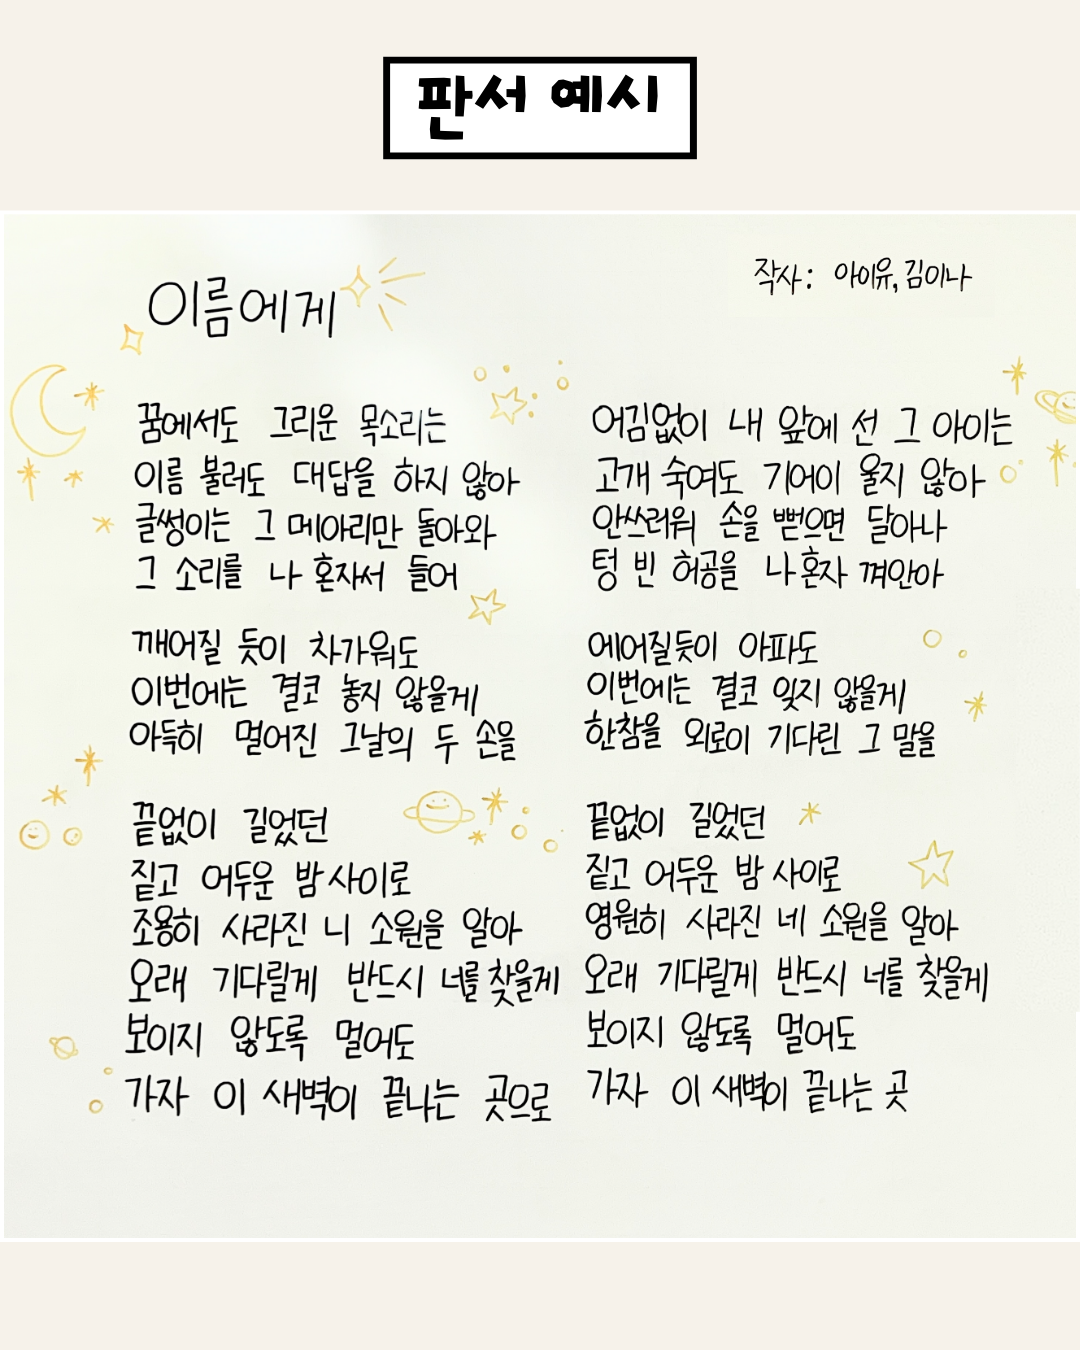 판서 예시
이름에게
작사: 아이유, 김이나
꿈에서도 그리운 목소리는
이름 불러도 대답을 하지 않아
글썽이는 그 메아리만 돌아와
그 소리를 나 혼자서 들어
깨어질 듯이 차가워도
이번에는 결코 놓지 않을게
아득히 멀어진 그날의 두 손을
끝없이 길었던
짙고 어두운 밤 사이로
조용히 사라진 니 소원을 알아
오래 기다릴게 반드시 너를 찾을게
보이지 않도록 멀어도
가자 이 새벽이 끝나는 곳으로
어김없이 내 앞에 선 그 아이는
고개 숙여도 기어이 울지 않아
안쓰러워 손을 뻗으면 달아나
텅 빈 허공을 나 혼자 껴안아
에어질듯이 아파도
이번에는 결코 잊지 않을게
한참을 외로이 기다린 그 말을
끝없이 길었던
짙고 어두운 밤 사이로
영원히 사라진 네 소원을 알아
오래 기다릴게 반드시 너를 찾을게
보이지 않도록 멀어도
가자 이 새벽이 끝나는 곳